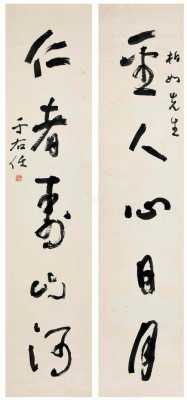 圣人心日月
柏如先生
仁者寿山河
于右任